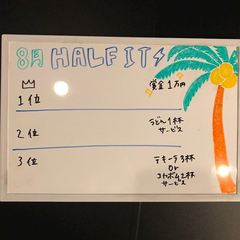 8月 HALF IT
賞金 1万円
1位
2位
うどん1杯
サービス
3位
テキーラ3杯
or
コカボム2杯
サービス